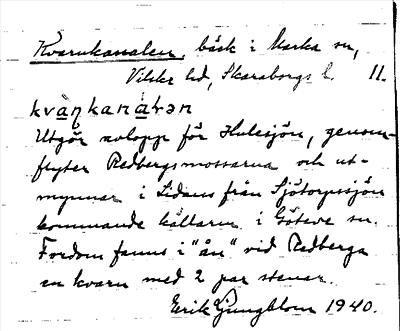 Kvarnkanalen, bäck i Marka sn,
Vilske hd, Skaraborgs l. 11.
kvaṇkanạ́lən
Utgör avlopp för Hulesjön, genom-
flyter Redbergsmossarna och ut-
mynnar i Lidans från Sjötorpssjön
kommande källarm i Göteve sn.
Fordom fanns i "ån" vid Redberga
en kvarn med 2 par stenar.
Erik Ljungblom 1940.